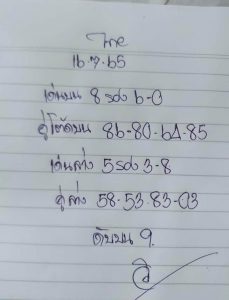 ไทย
16.7.65
เด่นบน 8 รอง 6-0
คู่โต๊ดบน 86-80-64-85
เด่นล่าง 5 รอง 3-8
คู่ล่าง 58-53-83-03
ดับบน 9